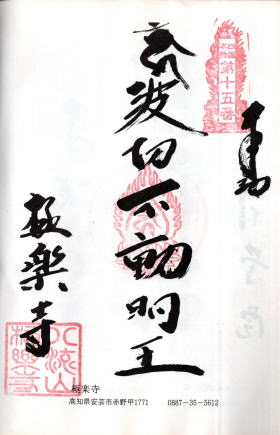 第十五番
奉拝
波切不動明王
極楽寺
極楽寺
高知県安芸市赤野甲1771　0887-35-5612